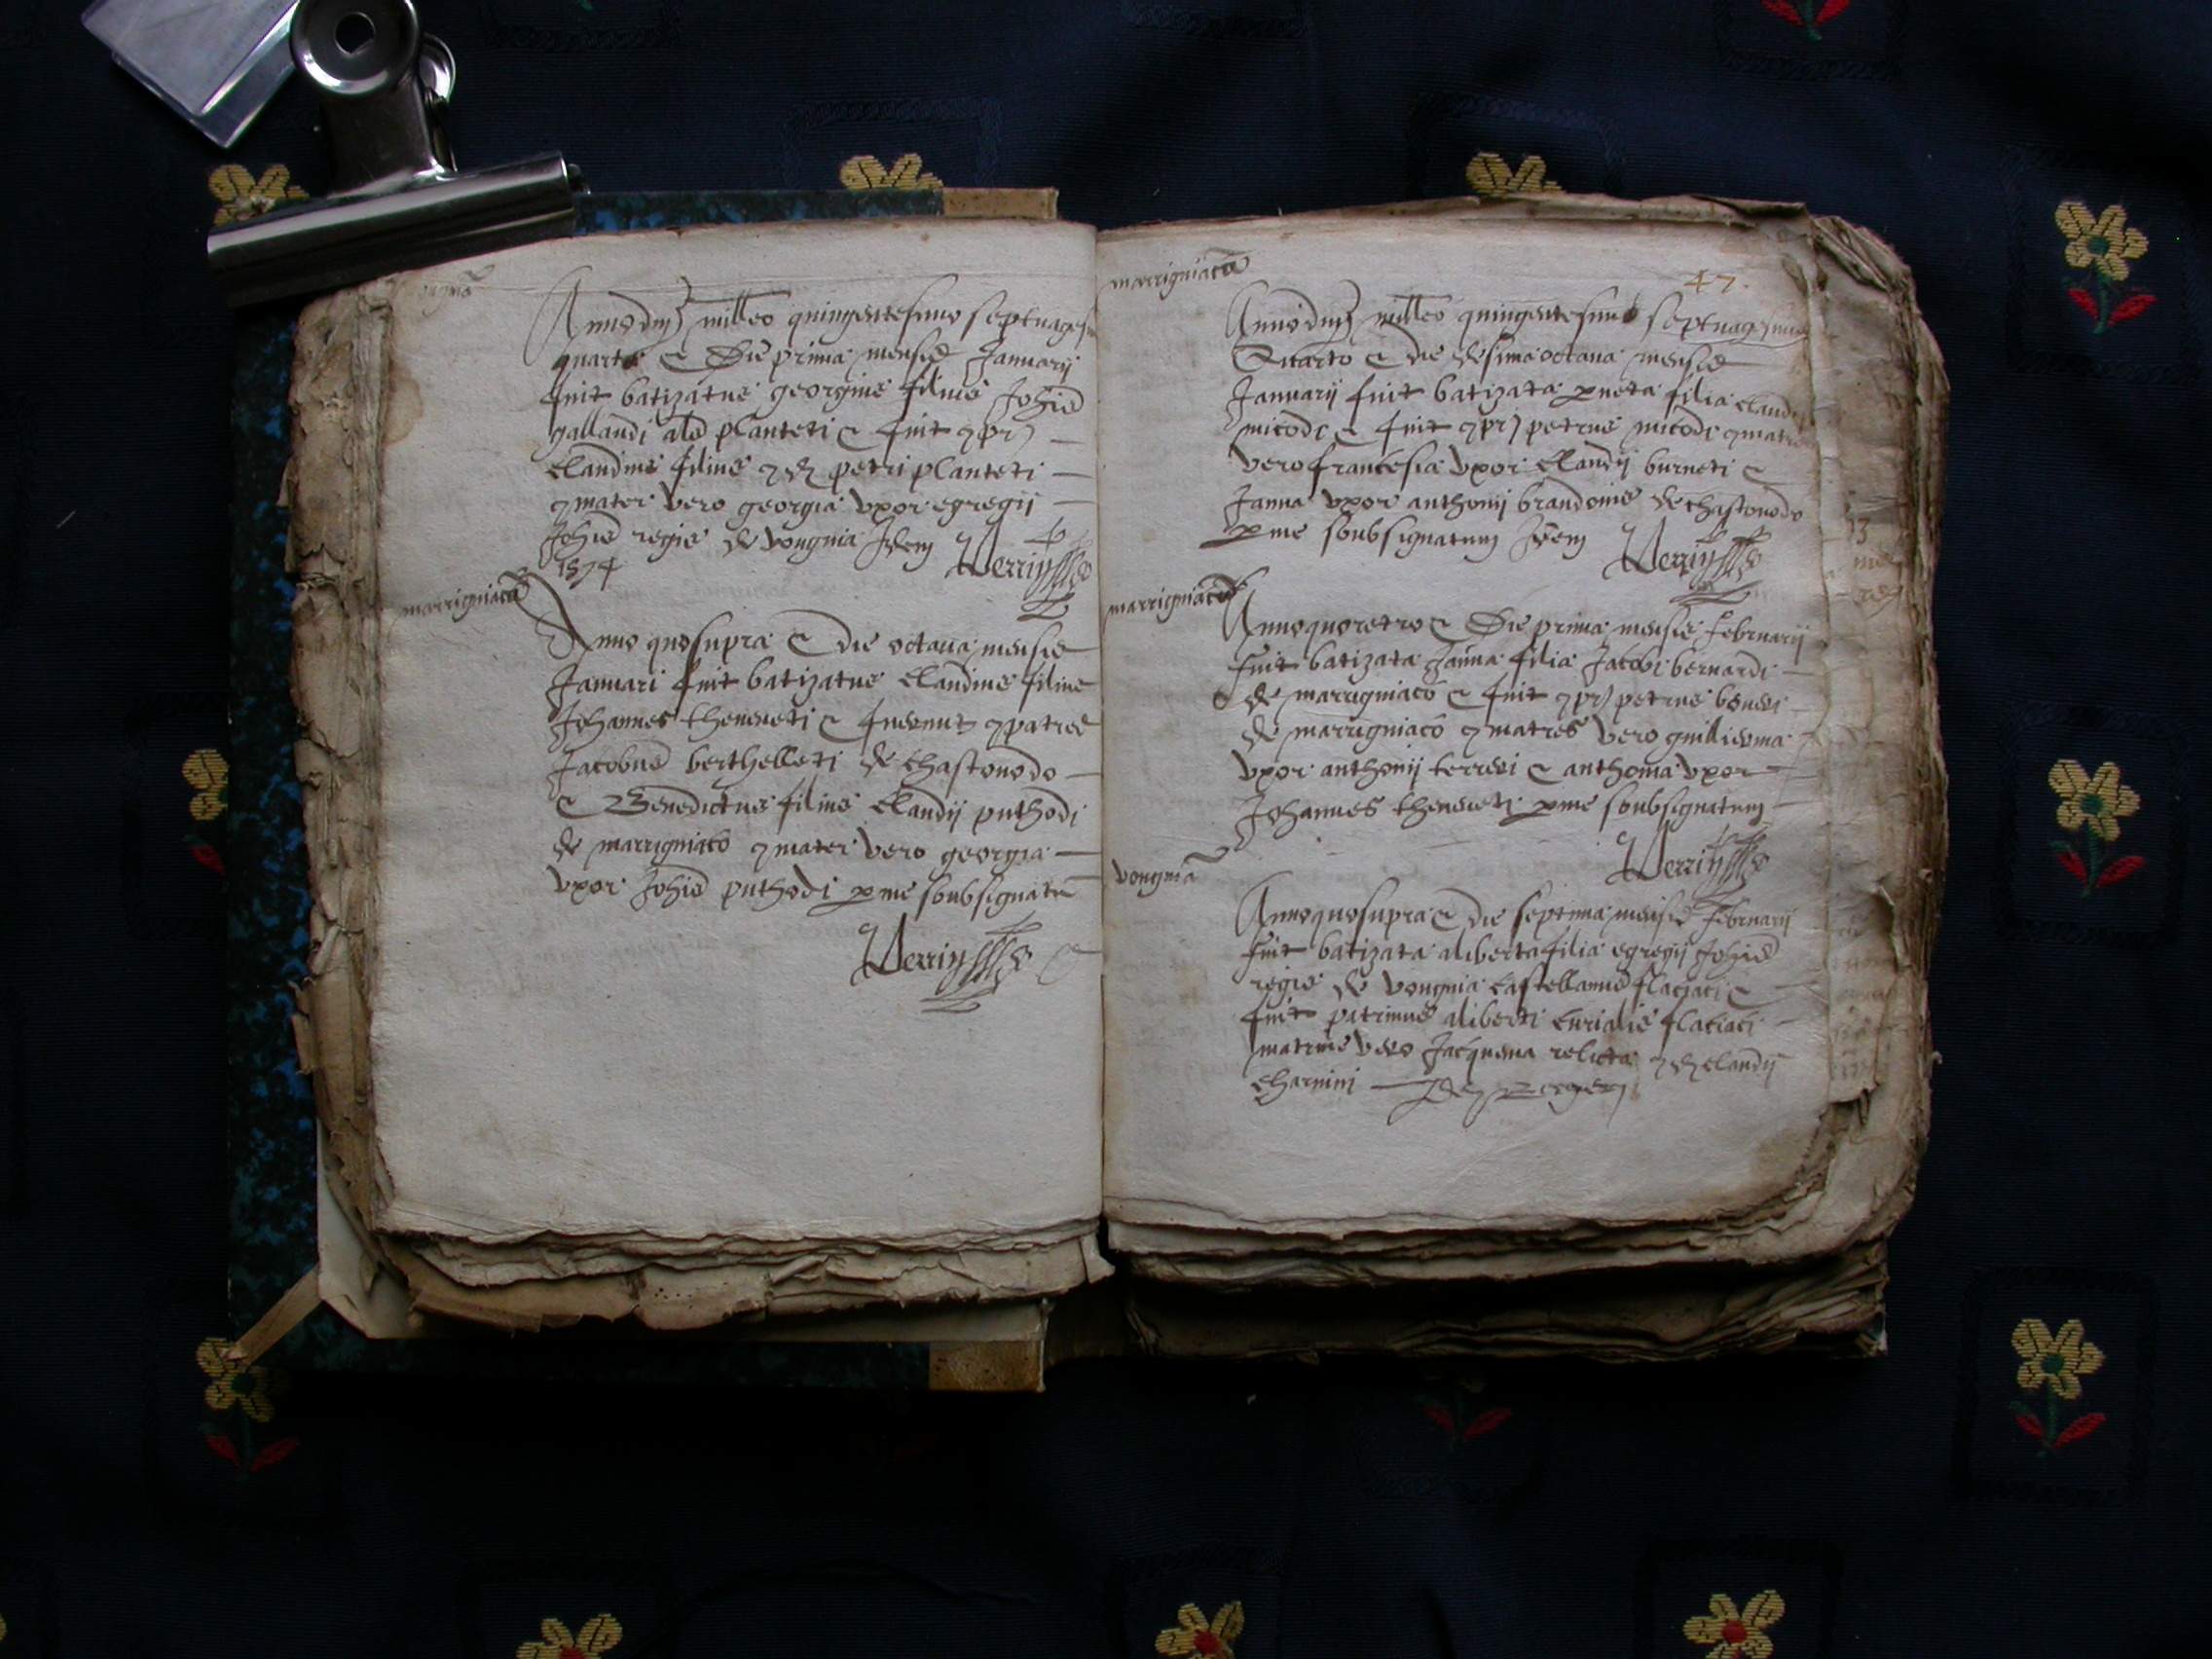 Anno dnj milleo quingentesimo septuages
quarto & Die prima mensis Januarij
fuit batizatus georgius filius Johis
gallandi als planteti & fuit
claudius filius petri planteti
mater vero georgia uxor egregii
Johis regis de vongnia Idem Verrin
1574
marrigniaco
Anno quo supra & die octava mensis
Januari fuit batizatus Claudius filius
Johannes theneveti & fuerunt 9patres
Jacobus berthelleti de chastonodo
& Benedictus filius Claudij puthodi
de marrigniaco 9mater vero georgia
uxor Johis puthodi p me soubsignatu
Verrin
marrigniaco
47.
Anno dnj milleo quingentesimo septuagesimo
Quarto & die desima octava mensis
Januarij fuit batizata filia claudi
micodi & fuit 9pr petrus micodi 9matres
vero francesia uxor Claudij burneti &
Janna uxor anthonij brandonis de chastonodo
p me soubsignatum Idem Verrin
marrigniaco
Anno quo retro & Die prima mensis februarij
fuit batizata Janna filia Jacobi bernardi
de marrigniaco & fuit 9pr petrus
de marrigniaco 9matres vero guillierma
uxor anthonij & anthonia uxor
Johannes theneveti p me soubsignatum
Verrin
vongnia
Anno quo supra & die septima mensis februarij
fuit batizata aliberta filia egregij Johis
regis de vongnia castellanus flaciaci &
fuit patrinus aliberti curialis flaciaci
matrina vero Jacquema relicta claudij
charnini